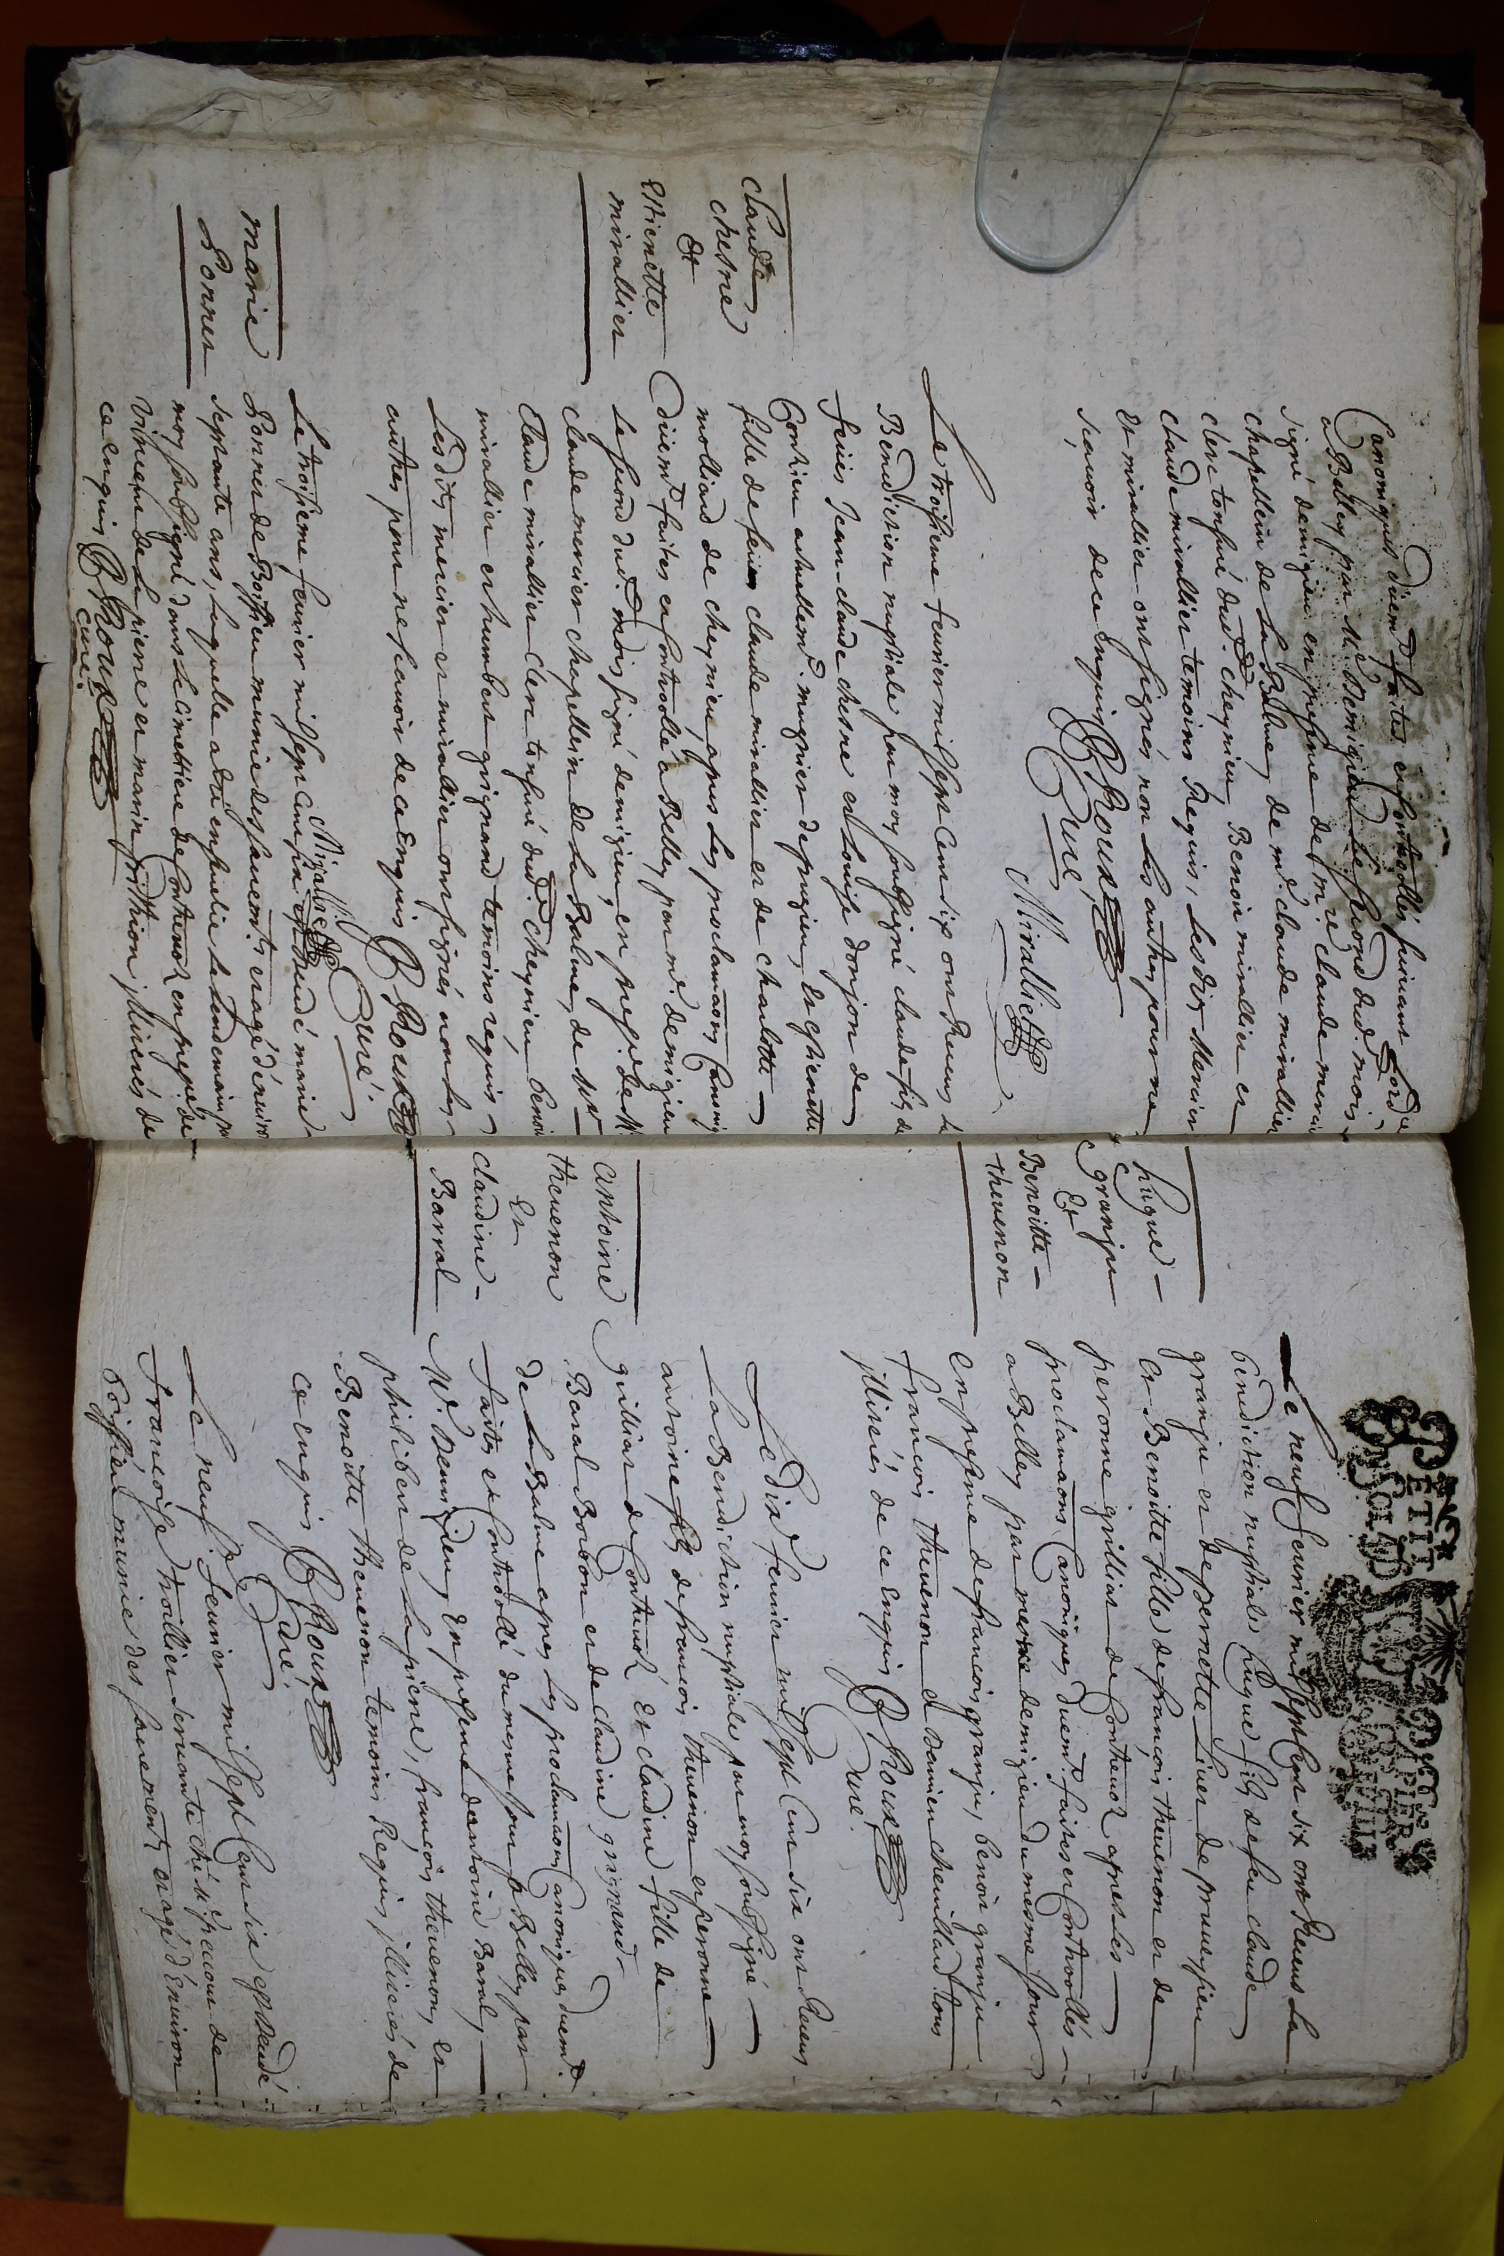 Canoniques düem.t faites et controlles suivant Lord.e
a Belley par M.r Demigieu Le second dud. mois
signé demigieu en presence de m.re claude mercier
chapellein de La Balme, de m.e claude mirallier
clerc tonsuré dud. cheynieu, Benoit mirallier et
claude mirallier temoins Requis, Lesdits Mercier
et mirallier ont signés non les autres pour ne
sçauoir de ce enquis
Roux
Curé
Mirallier
claude
chesne
&
Estienette
mirallier
Le troisieme feurier mil sept Cent six ont Receus La
Benediction nuptiale par moy soubsigné claude fils de
feüs Jean-claude chesne et Loüise donjon de
Contrieu actuellem.t mugnier de prugieu, et estienette
fille de feu claude mirallier et de charlotte
molliard de cheynieu apres Les proclamaôns Canoniq
düem.t faites et controollé a Belley par m.r demigieu
Le second dud. mois signé demigieu, en presce de M.r
claude mercier chapellein de La Balme, de M.e
Claude mirallier clerc tonsuré dud. cheynieu Benoit
mirallier et humbert guignand temoins réquis
Lesdits mercier et mirallier ont signés non les
autres pour ne sçauoir de ce Enquis Roux
Curé
Mirallier
marie
Lonner
Le troisieme feurier mil sept Cent six est decedé marie
Lonner de Boissieu munie des sacrements et agé d'énuiron
septante ans, laquelle a été enseuelie le lendemain par
moy soubsigné dans Le Cimetiére de Contreuoz en presce de
vincent de La piere et marin jllitérés de
ce enquis Roux
curé.
PETIT PAPIER
hugue
granju
Et
Benoitte
theuenon
Le neuf feurier mil sept Cent six ont Receus La
benediction nuptiale hugue fils de feu claude
granju et de pernette Liuer de prueysieu
Et Benoitte fille de françois theuenon et de
peronne guillian de Contreuoz apres Les
proclamaons Canoniques düem.t faites et Controollés
a Belley par mesre demigieu du mesme Jour
En presence de francois granju, benoit granju
francois theuenon et damien cheuillard tous
jllitérés de ce enquis Roux
Curé.
antoine
theuenon
Et
claudine
Barral
Le dix feurier mil sept Cent six ont Receus
La Benediction nuptiale par moy soubsigné
antoine fils de françois theuenon et peronne
guillian de Contreuoz Et claudine fille de
Baral Borbon et de claudine guignand
de La Balme apres Les proclamaôns Canoniques düem.t
faites et Controollé du mesme Jour a Belley par
M.r Demigieu, En presence dantoine Barral,
philibert de La piere, françois theuenon, et
Benoitte theuenon temoins Requis jllitérés de
ce enquis Roux
Curé
Le neuf feurier mil sept Cent six est decedé
francoise trollier seruante ché s.r de
Boissieu munie des sacrements et agé d'énuiron